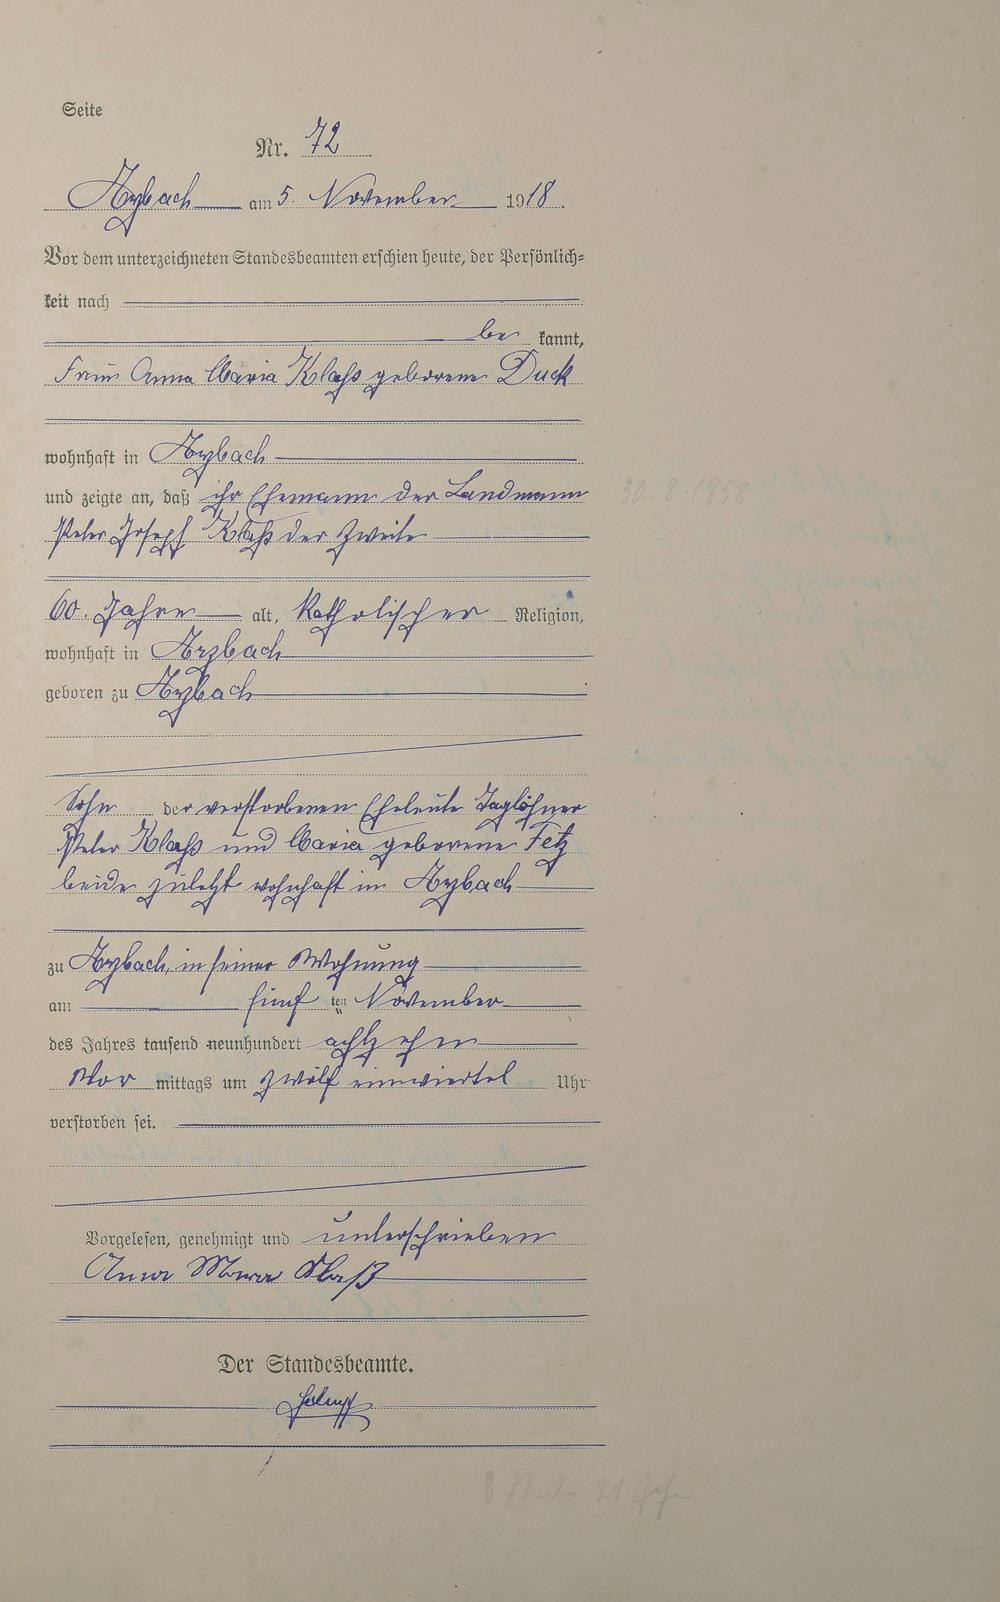 Seite
Nr. 72
Arzbach am 5. November 1918.
Vor dem unterzeichneten Standesbeamten erschien heute, der Persönlich=
keit nach
be kannt,
Frau Anna Maria Klaß geborene Duck
wohnhaft in Arzbach
und zeigte an, daß ihr Ehemann der Landmann
Peter Joseph Klaß der Zweite
60. Jahre alt, katholischer Religion,
wohnhaft in Arzbach
geboren zu Arzbach
Sohn der verstorbenen Eheleute Taglöhner
Peter Klaß und Maria geborene Fetz
beide zuletzt wohnhaft in Arzbach
zu Arzbach, in seiner Wohnung
am fünf ten November
des Jahres tausend neunhundert achtzehn
Vor mittags um zwölf einviertel Uhr
verstorben sei.
Vorgelesen, genehmigt und unterschrieben
Anna Maria Klaß
Der Standesbeamte.
30.8.1958